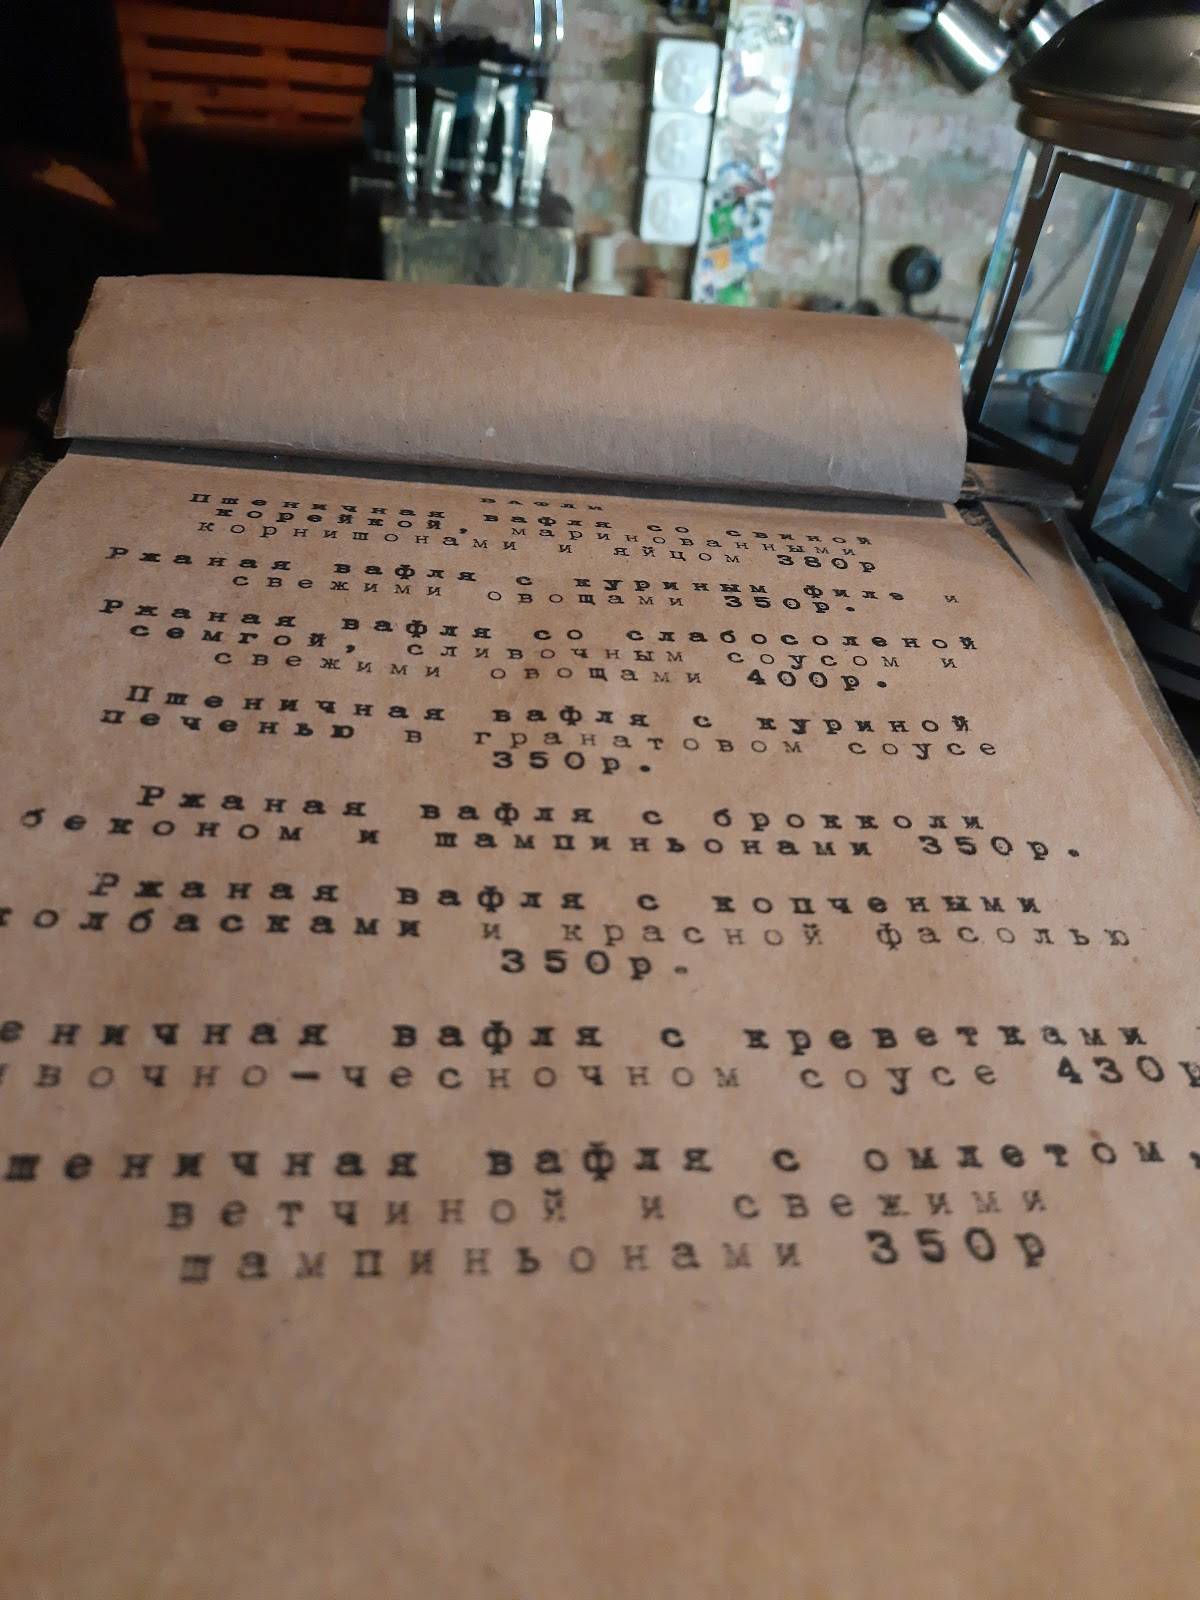 ВАФЛИ
Пшеничная вафля со свиной
корейкой, маринованными
корнишонами и яйцом 380р
Ржаная вафля с куриным филе и
свежими овощами 350р.
Ржаная вафля со слабосоленой
семгой, сливочным соусом и
свежими овощами 400р.
Пшеничная вафля с куриной
печенью в гранатовом соусе
350р.
Ржаная вафля с брокколи
беконом и шампиньонами 350р.
Ржаная вафля с копчеными
колбасками и красной фасолью
350р.
еничная вафля с креветками
ивочно-чесночном соусе 430р
шеничная вафля с омлетом,
ветчиной и свежими
шампиньонами 350р